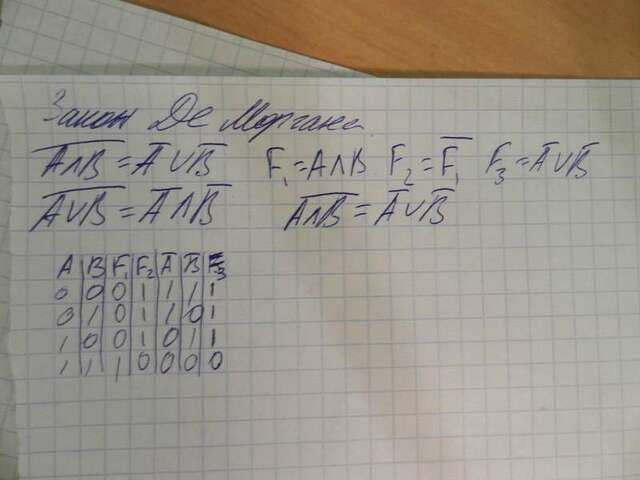 Закон Де Моргана
A̅∧̅B̅ = A̅ ∨ B̅ F₁ = A∧B F₂ = F̅₁ F₃ = A̅∨B̅
A̅∨̅B̅ = A̅ ∧ B̅ A̅∧̅B̅ = A̅∨B̅
A B F₁ F₂ A̅ B̅ F₃
0 0 0 1 1 1 1
0 1 0 1 1 0 1
1 0 0 1 0 1 1
1 1 1 0 0 0 0